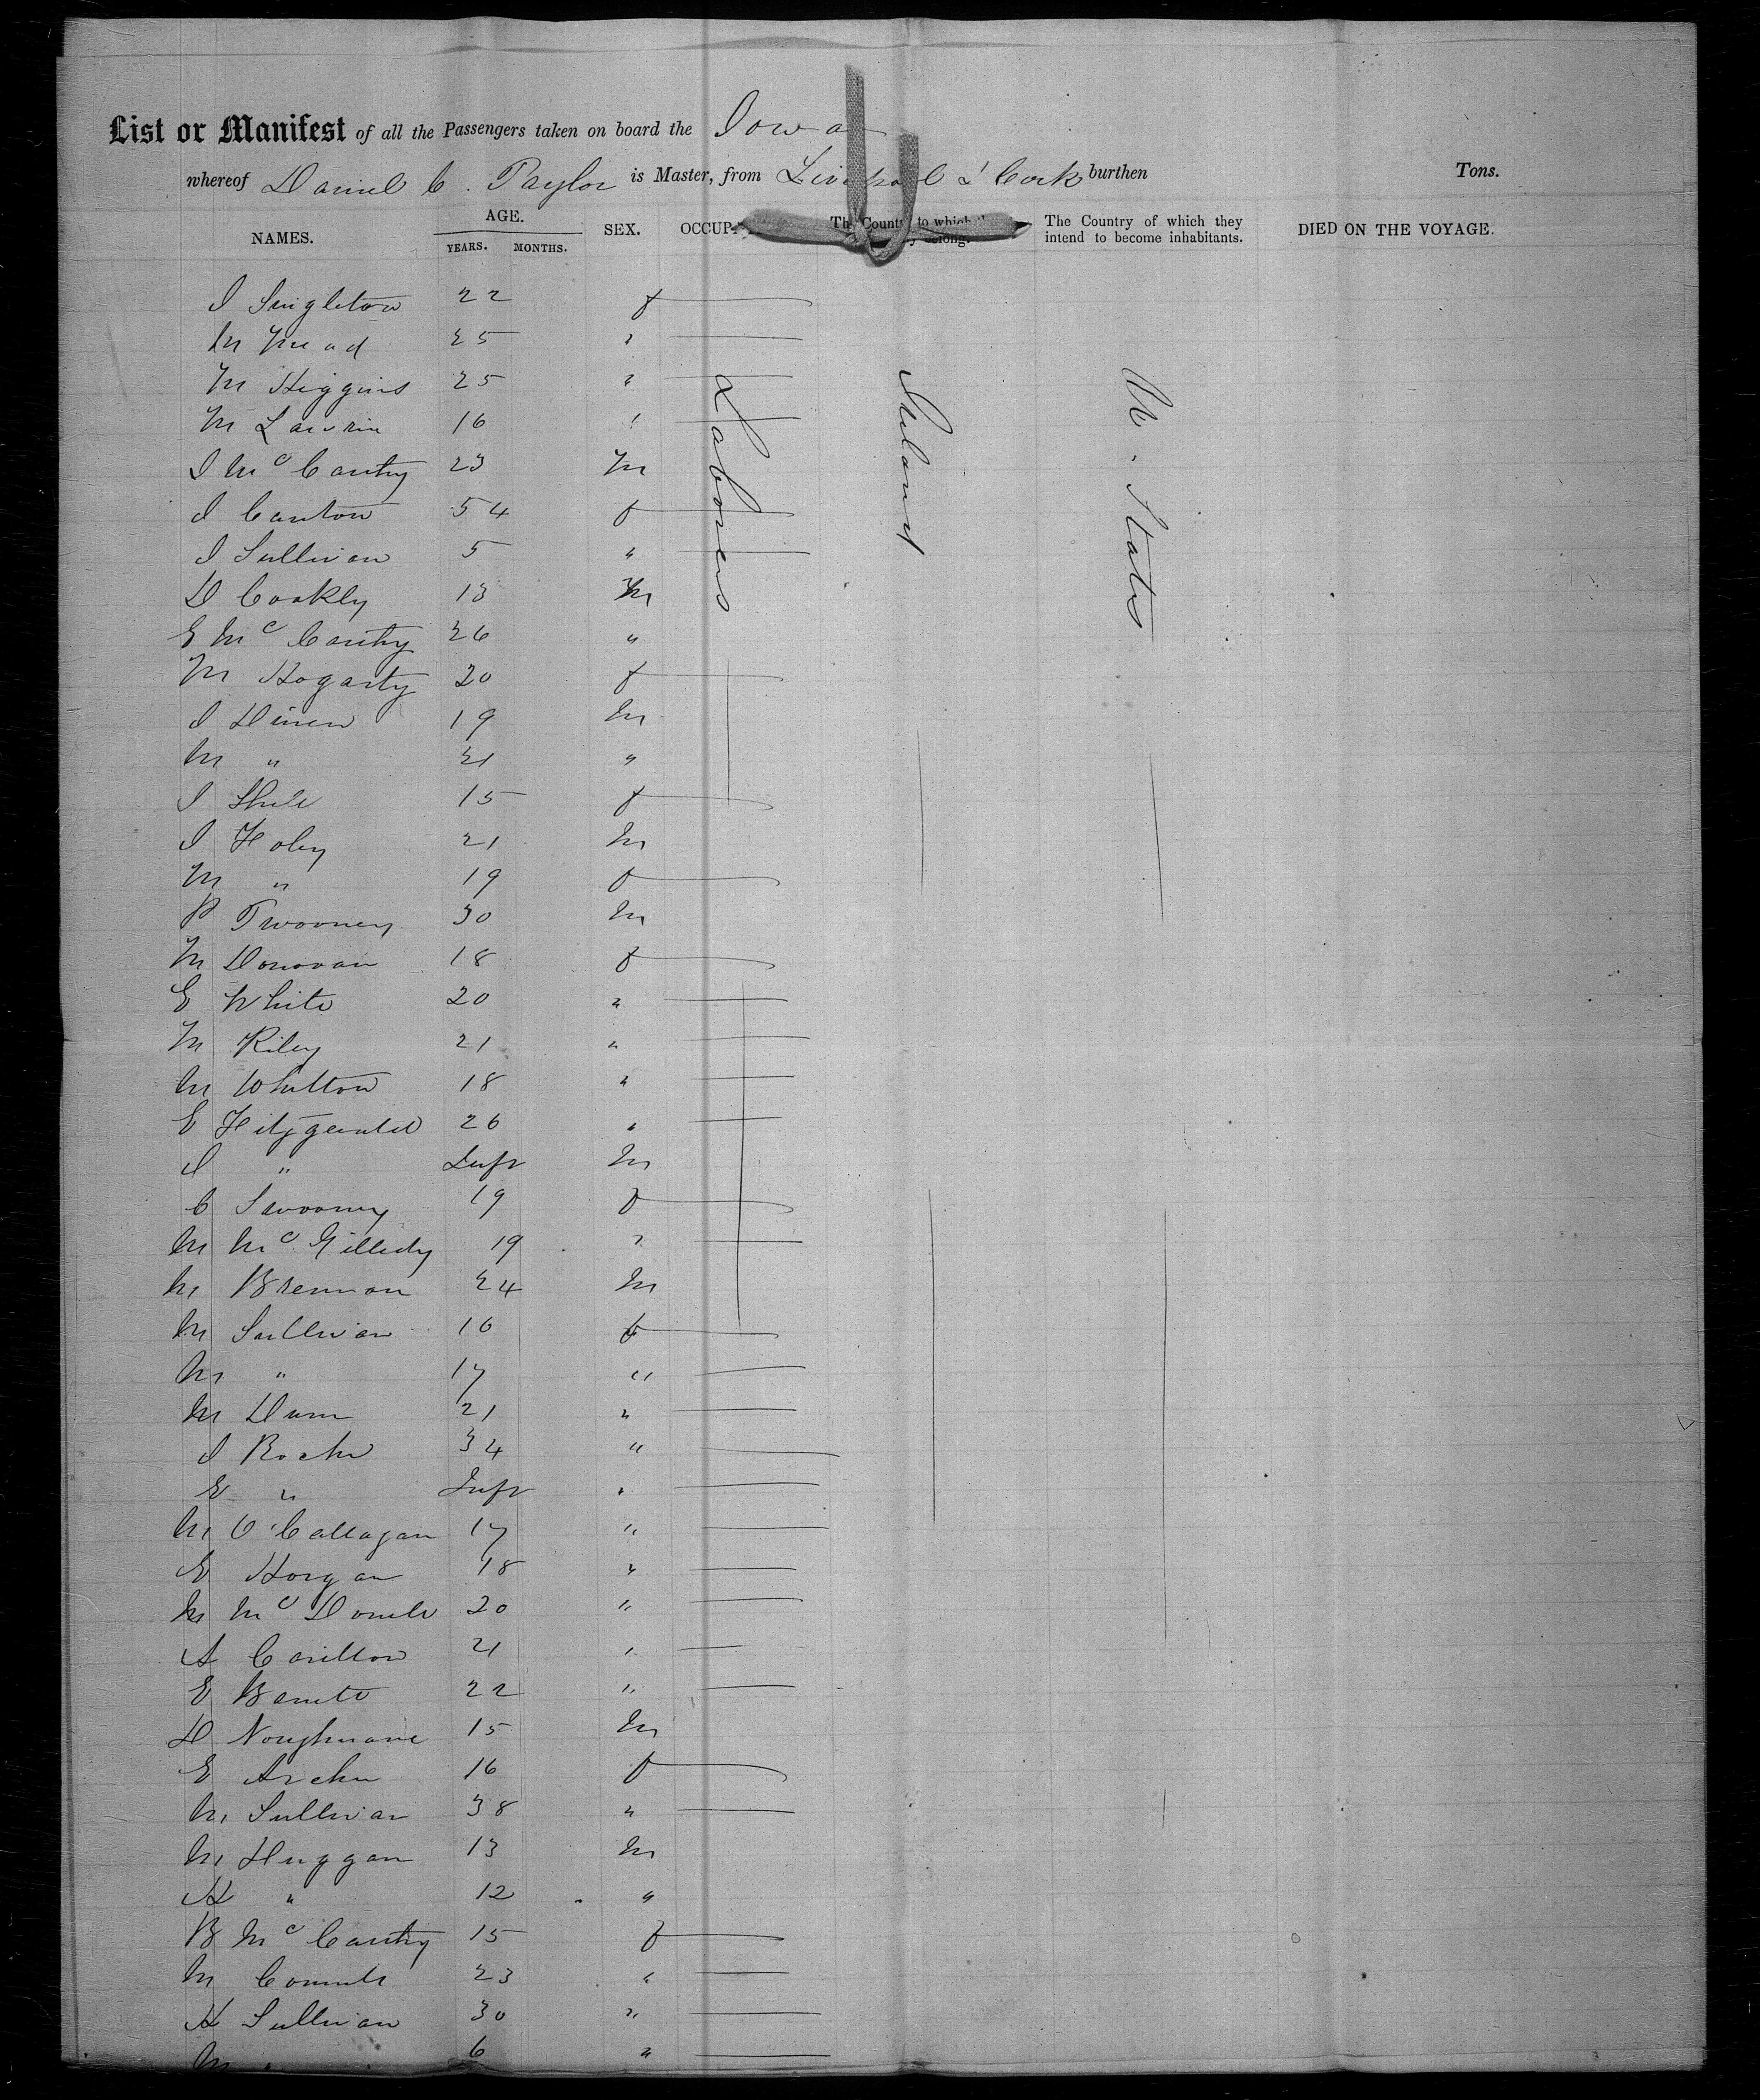 List or Manifest of all the Passengers taken on board the Iowa
whereof Daniel C. Taylor is Master, from Liverpool & Cork burthen Tons.
NAMES. AGE. YEARS. MONTHS. SEX. OCCUP The Country to which they belong. The Country of which they intend to become inhabitants. DIED ON THE VOYAGE.
I Singleton 22 f
M Mead 25 "
M Higgins 25 "
M 16 "
I McCarthy 23 M
I Canton 54 f
I Sullivan 5 "
D Coakly 13 M
E McCarthy 26 "
M Hogarty 20 f
I Dinen 19 M
M " 21 "
I 15 f
I Foley 21 M
M " 19 f
P Twoomey 30 M
M Donovan 18 f
E White 20 "
M Riley 21 "
M Whitton 18 "
E Fitzgerald 26 "
I " Inft M
C Swooney 19 f
M McGilledy 19 "
M Brennan 24 M
M Sullivan 16 f
M " 17 "
M Dunn 21 "
I Roche 34 "
E " Inft "
M O'Callagan 17 "
E Horgan 18 "
M 20 "
A 21 "
E 22 "
D 15 M
E Archer 16 f
M Sullivan 38 "
M Duggan 13 M
H " 12 "
B McCarthy 15 f
M 23 "
H Sullivan 30 "
M " 6 "
Laborers
Ireland
U. States